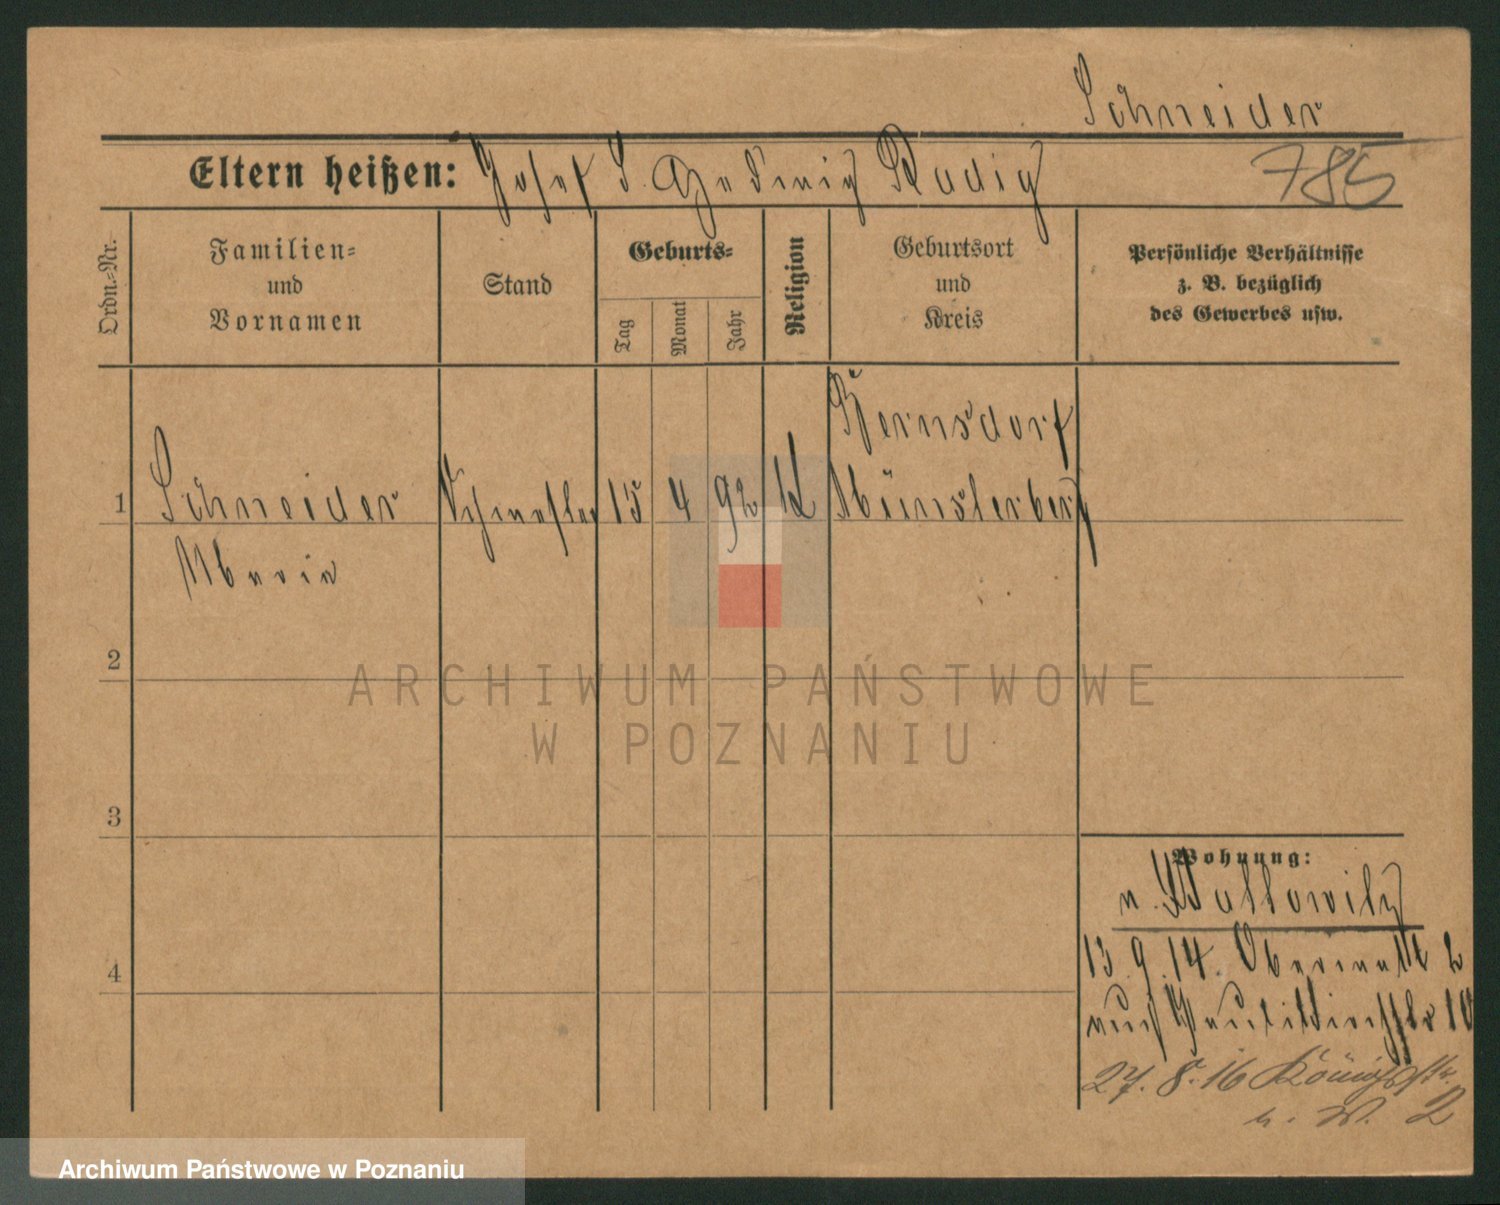 Schneider
Eltern heißen: Josef S. Hedwig Rudig
785
Ordn.-Nr.
Familien-
und
Vornamen
Stand
Geburts-
Tag
Monat
Jahr
Religion
Geburtsort
und
Kreis
Persönliche Verhältnisse
z. B. bezüglich
des Gewerbes usw.
Bernsdorf
1 Schneider 15 4 92 K Münsterberg
Maria
2
ARCHIWUM PAŃSTWOWE
W POZNANIU
3
Wohnung:
4
13.9.14. 2
10
27.8.16 Königstr.
2
Archiwum Państwowe w Poznaniu